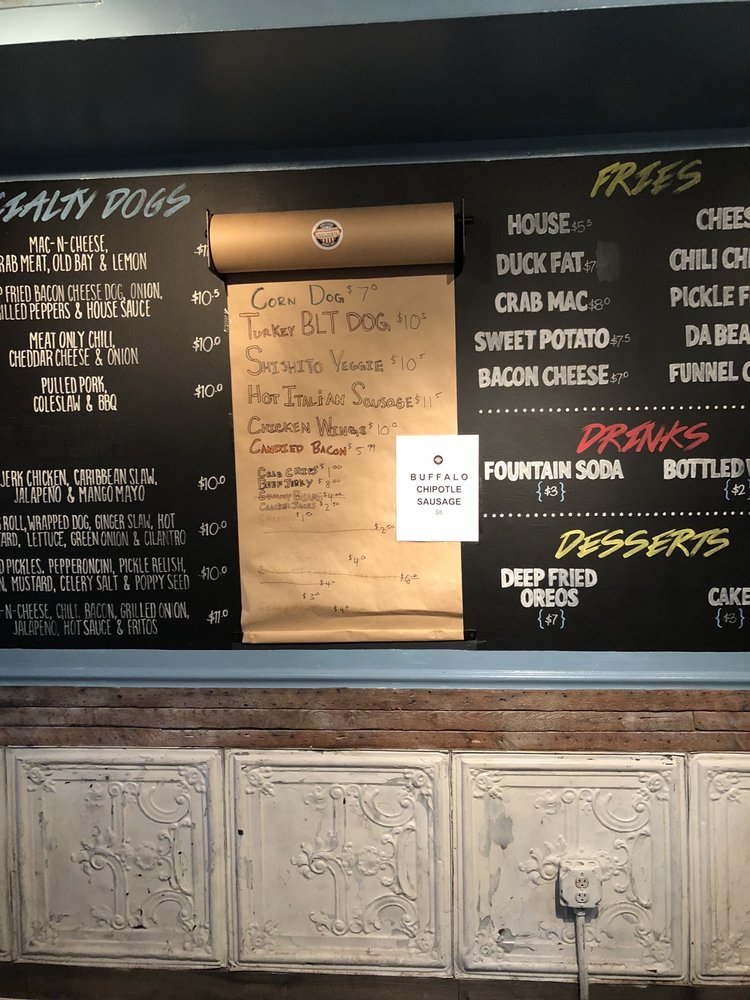 SPECIALTY DOGS
MAC-N-CHEESE,
CRAB MEAT, OLD BAY & LEMON
FRIED BACON CHEESE DOG, ONION, $10.5
& HOUSE SAUCE
MEAT ONLY CHILI, $10.0
CHEDDAR CHEESE & ONION
PULLED PORK, $10.0
COLESLAW & BBQ
JERK CHICKEN, CARIBBEAN SLAW, $10.0
JALAPEÑO & MANGO MAYO
ROLL, WRAPPED DOG, GINGER SLAW, HOT $10.0
LETTUCE, GREEN ONION & CILANTRO
PICKLES, PEPPERONCINI, PICKLE RELISH, $10.0
MUSTARD, CELERY SALT & POPPY SEED
-N-CHEESE, CHILI, BACON, GRILLED ONION, $11.0
JALAPENO, HOT SAUCE & FRITOS
CORN DOG $7.0
TURKEY BLT DOG $10.5
SHISHITO VEGGIE $10.5
HOT ITALIAN SAUSAGE $11.5
CHICKEN WINGS $10.0
CANDIED BACON $5.99
CRAB CHIPS $1.00
BEEF JERKY $8.00
GUMMY BEARS $4.00
CRACKER JACKS $2.50
BUFFALO
CHIPOTLE
SAUSAGE
$8
FRIES
HOUSE $5.5
DUCK FAT $7
CRAB MAC $8.0
SWEET POTATO $7.5
BACON CHEESE $7.0
CHEES
CHILI CH
PICKLE F
DA BEA
FUNNEL C
DRINKS
FOUNTAIN SODA
{$3}
BOTTLED
{$2
DESSERTS
DEEP FRIED
OREOS
{$7}
CAKE
{$3}